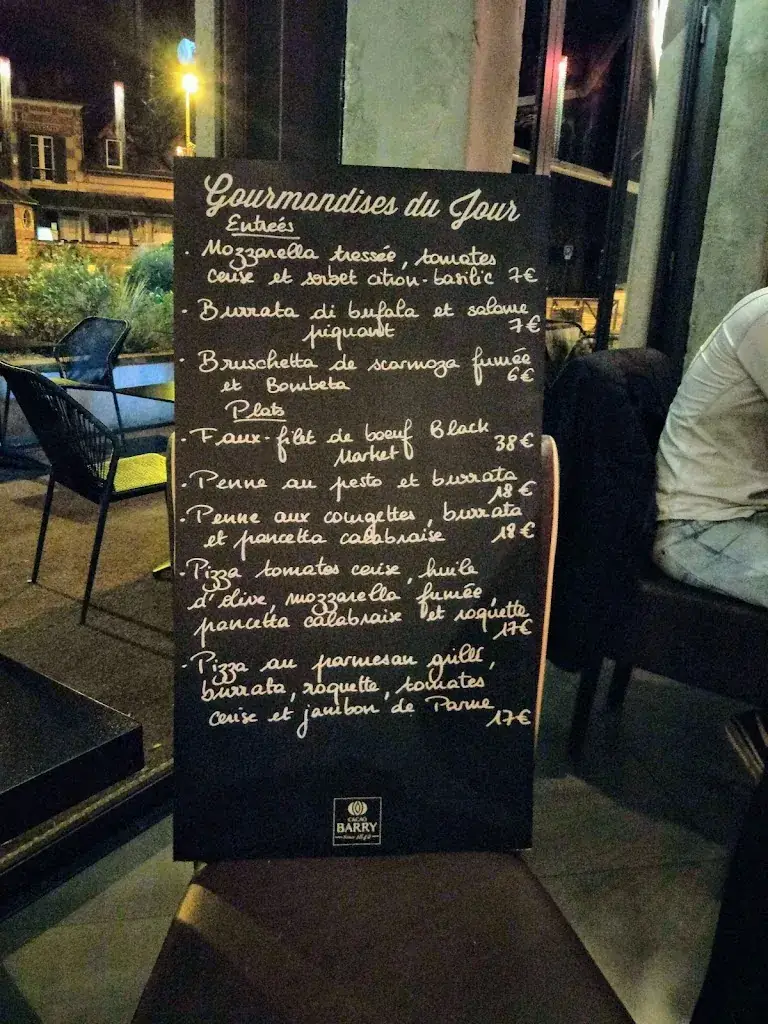 Gourmandises du Jour
Entreés
· Mozzarella tressée, tomates
cerise et sorbet citron-basilic 7€
· Burrata di bufala et salame
piquant 7€
· Bruschetta de scarmoza fumée
et Bombeta 6€
Plats
· Faux-filet de boeuf Black
Market 38€
· Penne au pesto et burrata
18€
· Penne aux courgettes, burrata
et pancetta calabraise 18€
· Pizza tomates cerise, huile
d'olive, mozzarella fumée,
pancetta calabraise et roquette
17€
· Pizza au parmesan griller,
burrata, roquette, tomates
cerise et jambon de Parme
17€
CACAO
BARRY
Since 1842